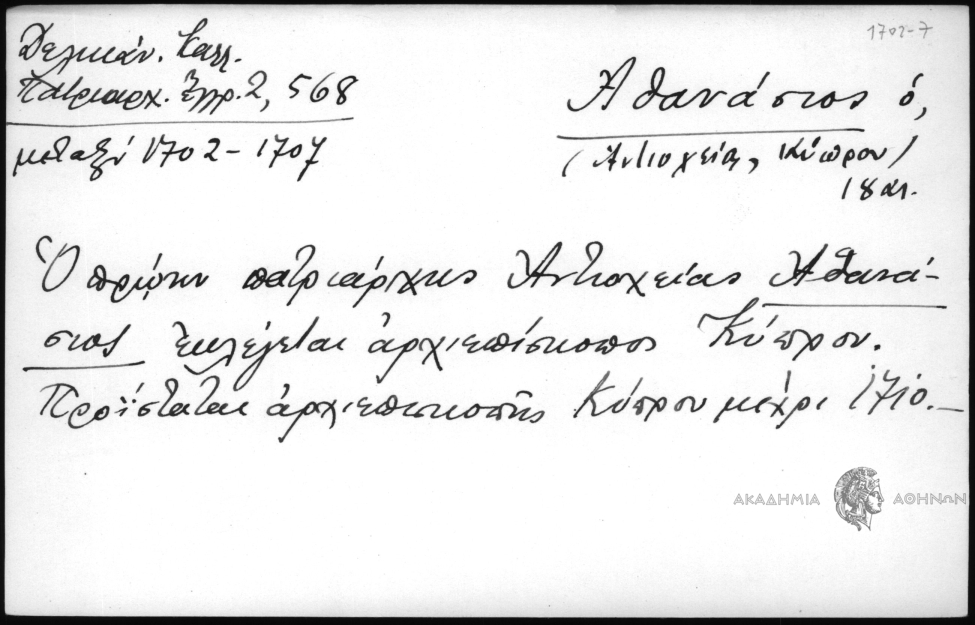 1702-7
Δελικάν. Καλλ.
Πατριαρχ. Ἔγγρ. 2, 568
μεταξύ 1702-1707
Ἀθανάσιος ὁ,
(Ἀντιοχείας, Κύπρου)
18 αι.
Ὁ πρῴην πατριάρχης Ἀντιοχείας Ἀθανά-
σιος ἐκλέγεται ἀρχιεπίσκοπος Κύπρου.
Προΐσταται ἀρχιεπισκοπῆς Κύπρου μέχρι 1710.—
ΑΚΑΔΗΜΙΑ ΑΘΗΝΩΝ